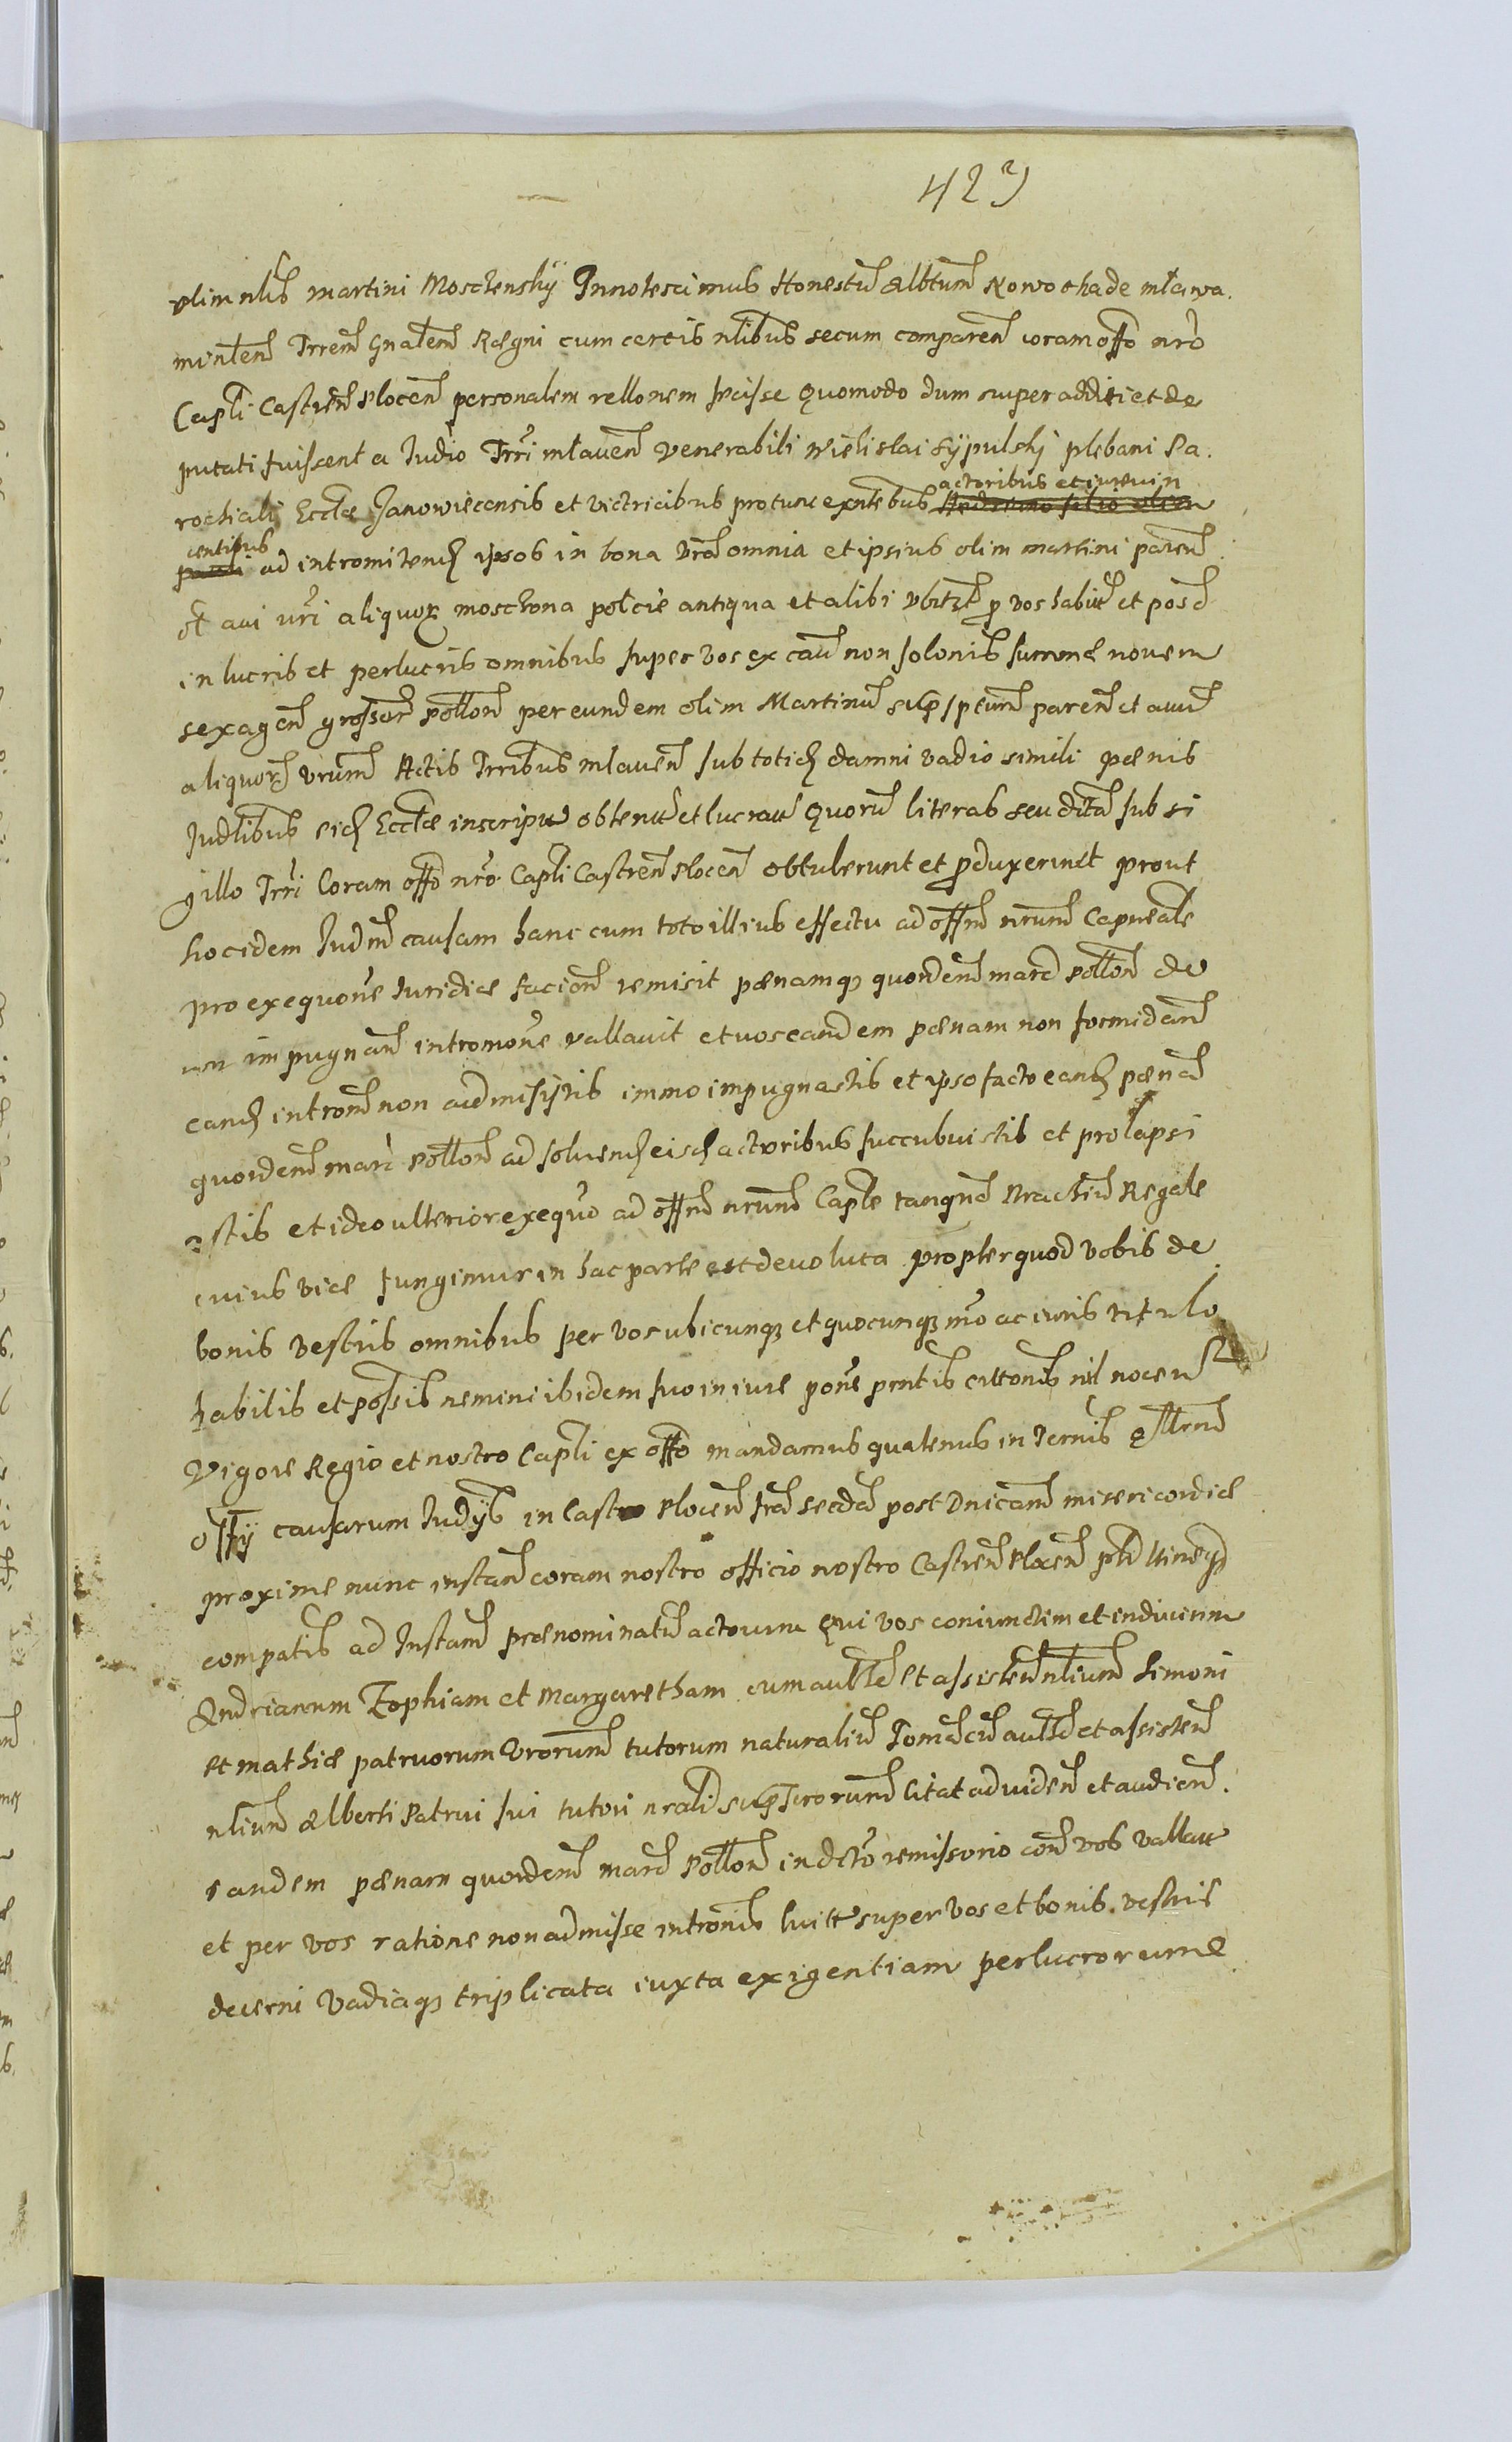 423
olim nlis martini Moschenskÿ Innotescimus Honestu Albtum Nowochade mlawa.
mintem Trrem Gnalem Regni cum certis nlibus secum comparen coram offo nro
Capli Castren Plocen personalem rellonem fecisse Quomodo dum superadditi et de
putati fuissent a Judio Trri mlaven Venerabili Wielislai Sÿpulskj plebani Pa.
actoribus et iurevin
rochialis Ecclae Janowiecensis et victricibus pro tunc exntebus Andreano filio olim
centibus
pauli ad intromitend ipsos in bona vra omnia et ipsius olim martini paren
et avi vri aliquor moschona polcie antiqua et alibi vbitzt p vos habit et posd
in lucris et perlucris omnibus super vos ex cau non solonis summae novem
sexagen grossor pollon per eundem olim Martinu sup sptum paren et avu
aliquor vrum Actis Trribus mlaven sub totid damni vadio simili paenis
Judlibus eid Ecclae inscript obtent et lucrat Quoru literas seu dita sub si
gillo Trri Coram offo nro Capli Castren Plocen obtulerunt et pduxerint prout
hocidem Judm causam hanc cum toto illius effectu ad offm nrum Capneale
pro exequone Juridice facien remisit paenamq quordem marc pollon de
non impugnan intromone vallavit et vos eandem paenam non formidan
eand introm non admisistis immo impugnastis et ipso facto eand paena
quordem marc pollon ad solvend eisd actoribus succubuistis et prolapsi
estis et ideo ulterior exequo ad offm nrum Caple tanqua Brachiu Regale
cuius vice fungimur in hac parte est devoluta propterquod vobis de
bonis vestris omnibus per vos ubicunq et quocunq mo ac iuris titulo
habitis et possis nemini ibidem suo in iure pone pntis cittonis nil nocen
Vigore Regio et nostro Capli ex offo mandamus quatenus in Termis qllrum
offÿ causarum Judÿs in Castro Plocen fra secda post Dnicam misericordiae
proxime nunc instan coram nostro officio nostro Castren Plocen
compatis ad Instam praenominatu actorum Qui vos coniunctim et indivisim
Andrianum Zophiam et Margaretham cum autte et assisten nlium Simoni
et mathiae patruorum vrorum tutorum naturaliu Toma cu autte et assisten
nlium Alberti Patrui sui tutori nrali sup Trrorum citat ad viden et audien
eandem paenam quordem marc pollon in dcto remissorio con vos vallatt
et per vos ratione non admissae intronis luitt super vos et bonis vestris
decerni vadiaq triplicata iuxta exigentiam perlucrorum e